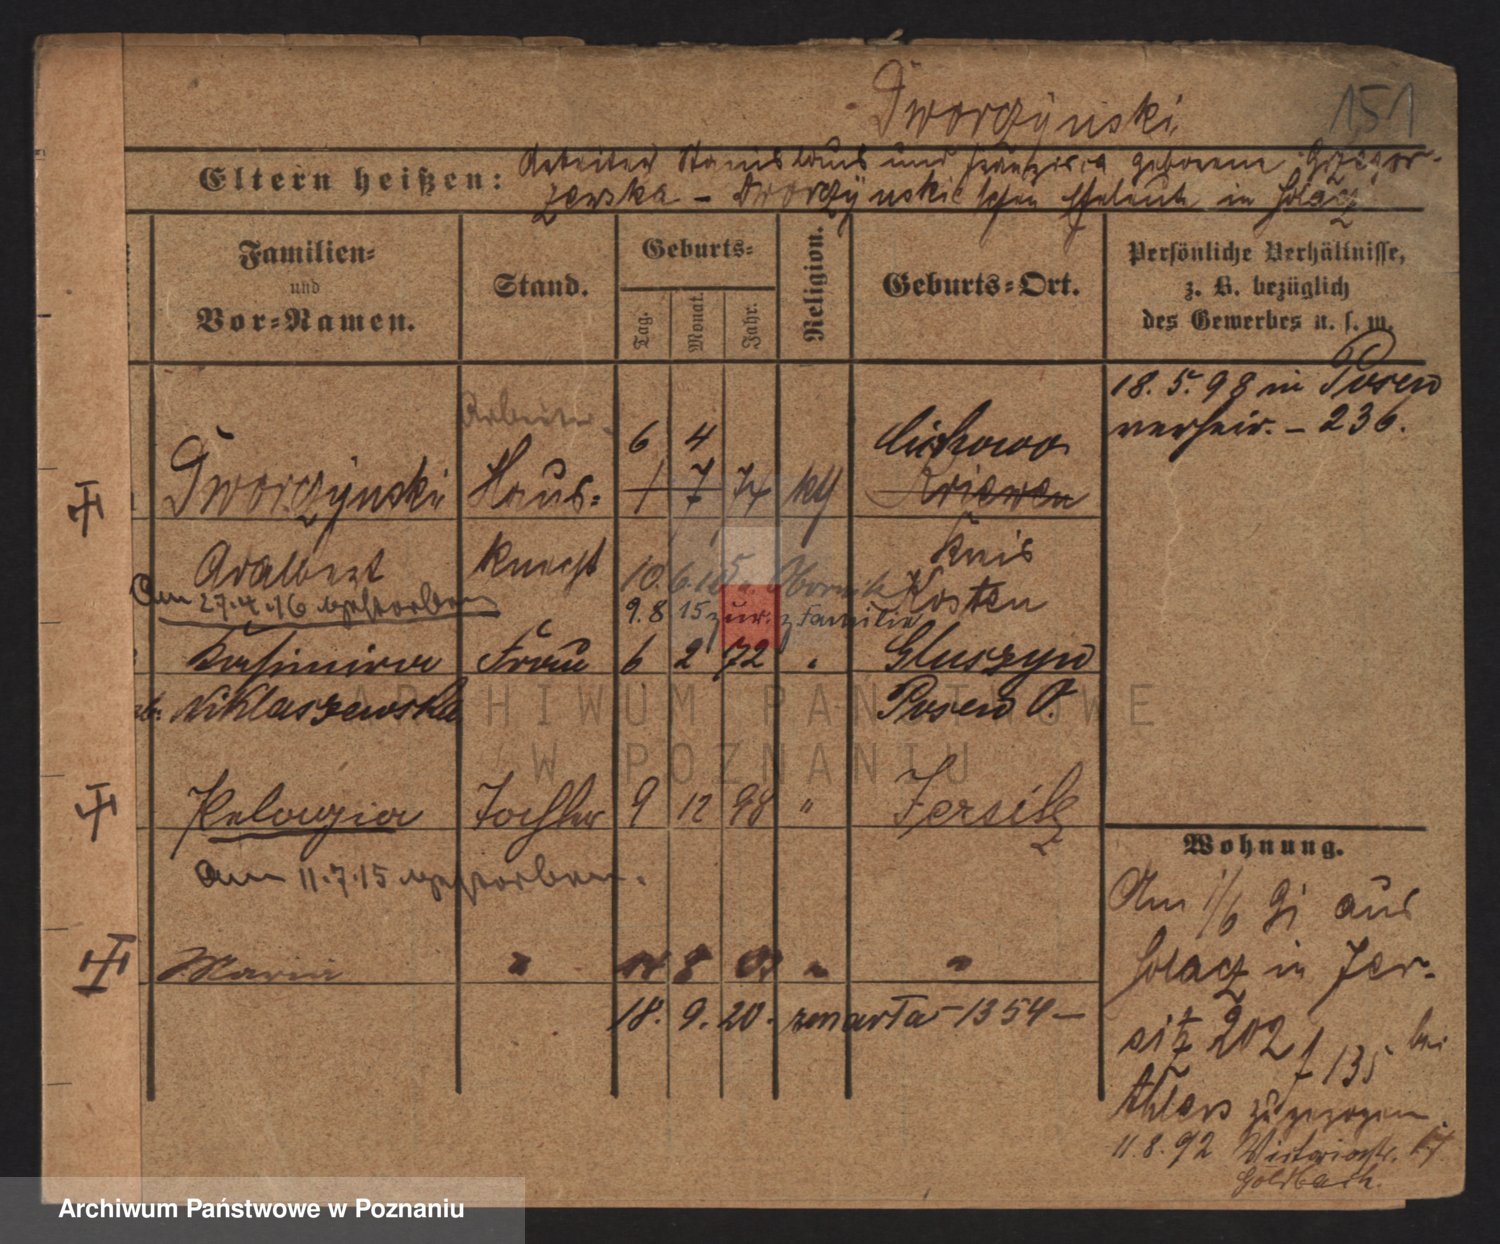 Dworczynski
151
Eltern heißen:
Arbeiter Stanislaus und Franziska geborene Grzegor-
zewska - Dworczynski'schen Eheleute in Solacz
Familien=
und
Vor=Namen.
Stand.
Geburts=
Tag.
Monat.
Jahr.
Religion.
Geburts=Ort.
Persönliche Verhältnisse,
z. B. bezüglich
des Gewerbes u. s. w.
18. 5. 98 in Posen
verheir. - 236.
Arbeiter
6 4 Cichowo
Dworczynski Haus= 1 7 74 kth Kriewen
Adalbert knecht Kreis
10. 6. 15. Obornik Kosten
Am 27.4.16 gestorben
9. 8 15 zur. z Familie
Kasimira Frau 6 2 72 " Gluszyn
Niklaszewska Posen O.
Pelagia Tochter 9 12 98 " Jersitz
Am 11.7.15 gestorben.
Maria " 8 " "
18. 9. 20. zmarła - 1354 -
Wohnung.
Am 1/6 91 aus
Solacz in Jer-
sitz 202 / 135 bei
Ahlers zugezogen
11. 8. 92 Victoriastr. 17
Goldbach.
ARCHIWUM PAŃSTWOWE
W POZNANIU
Archiwum Państwowe w Poznaniu